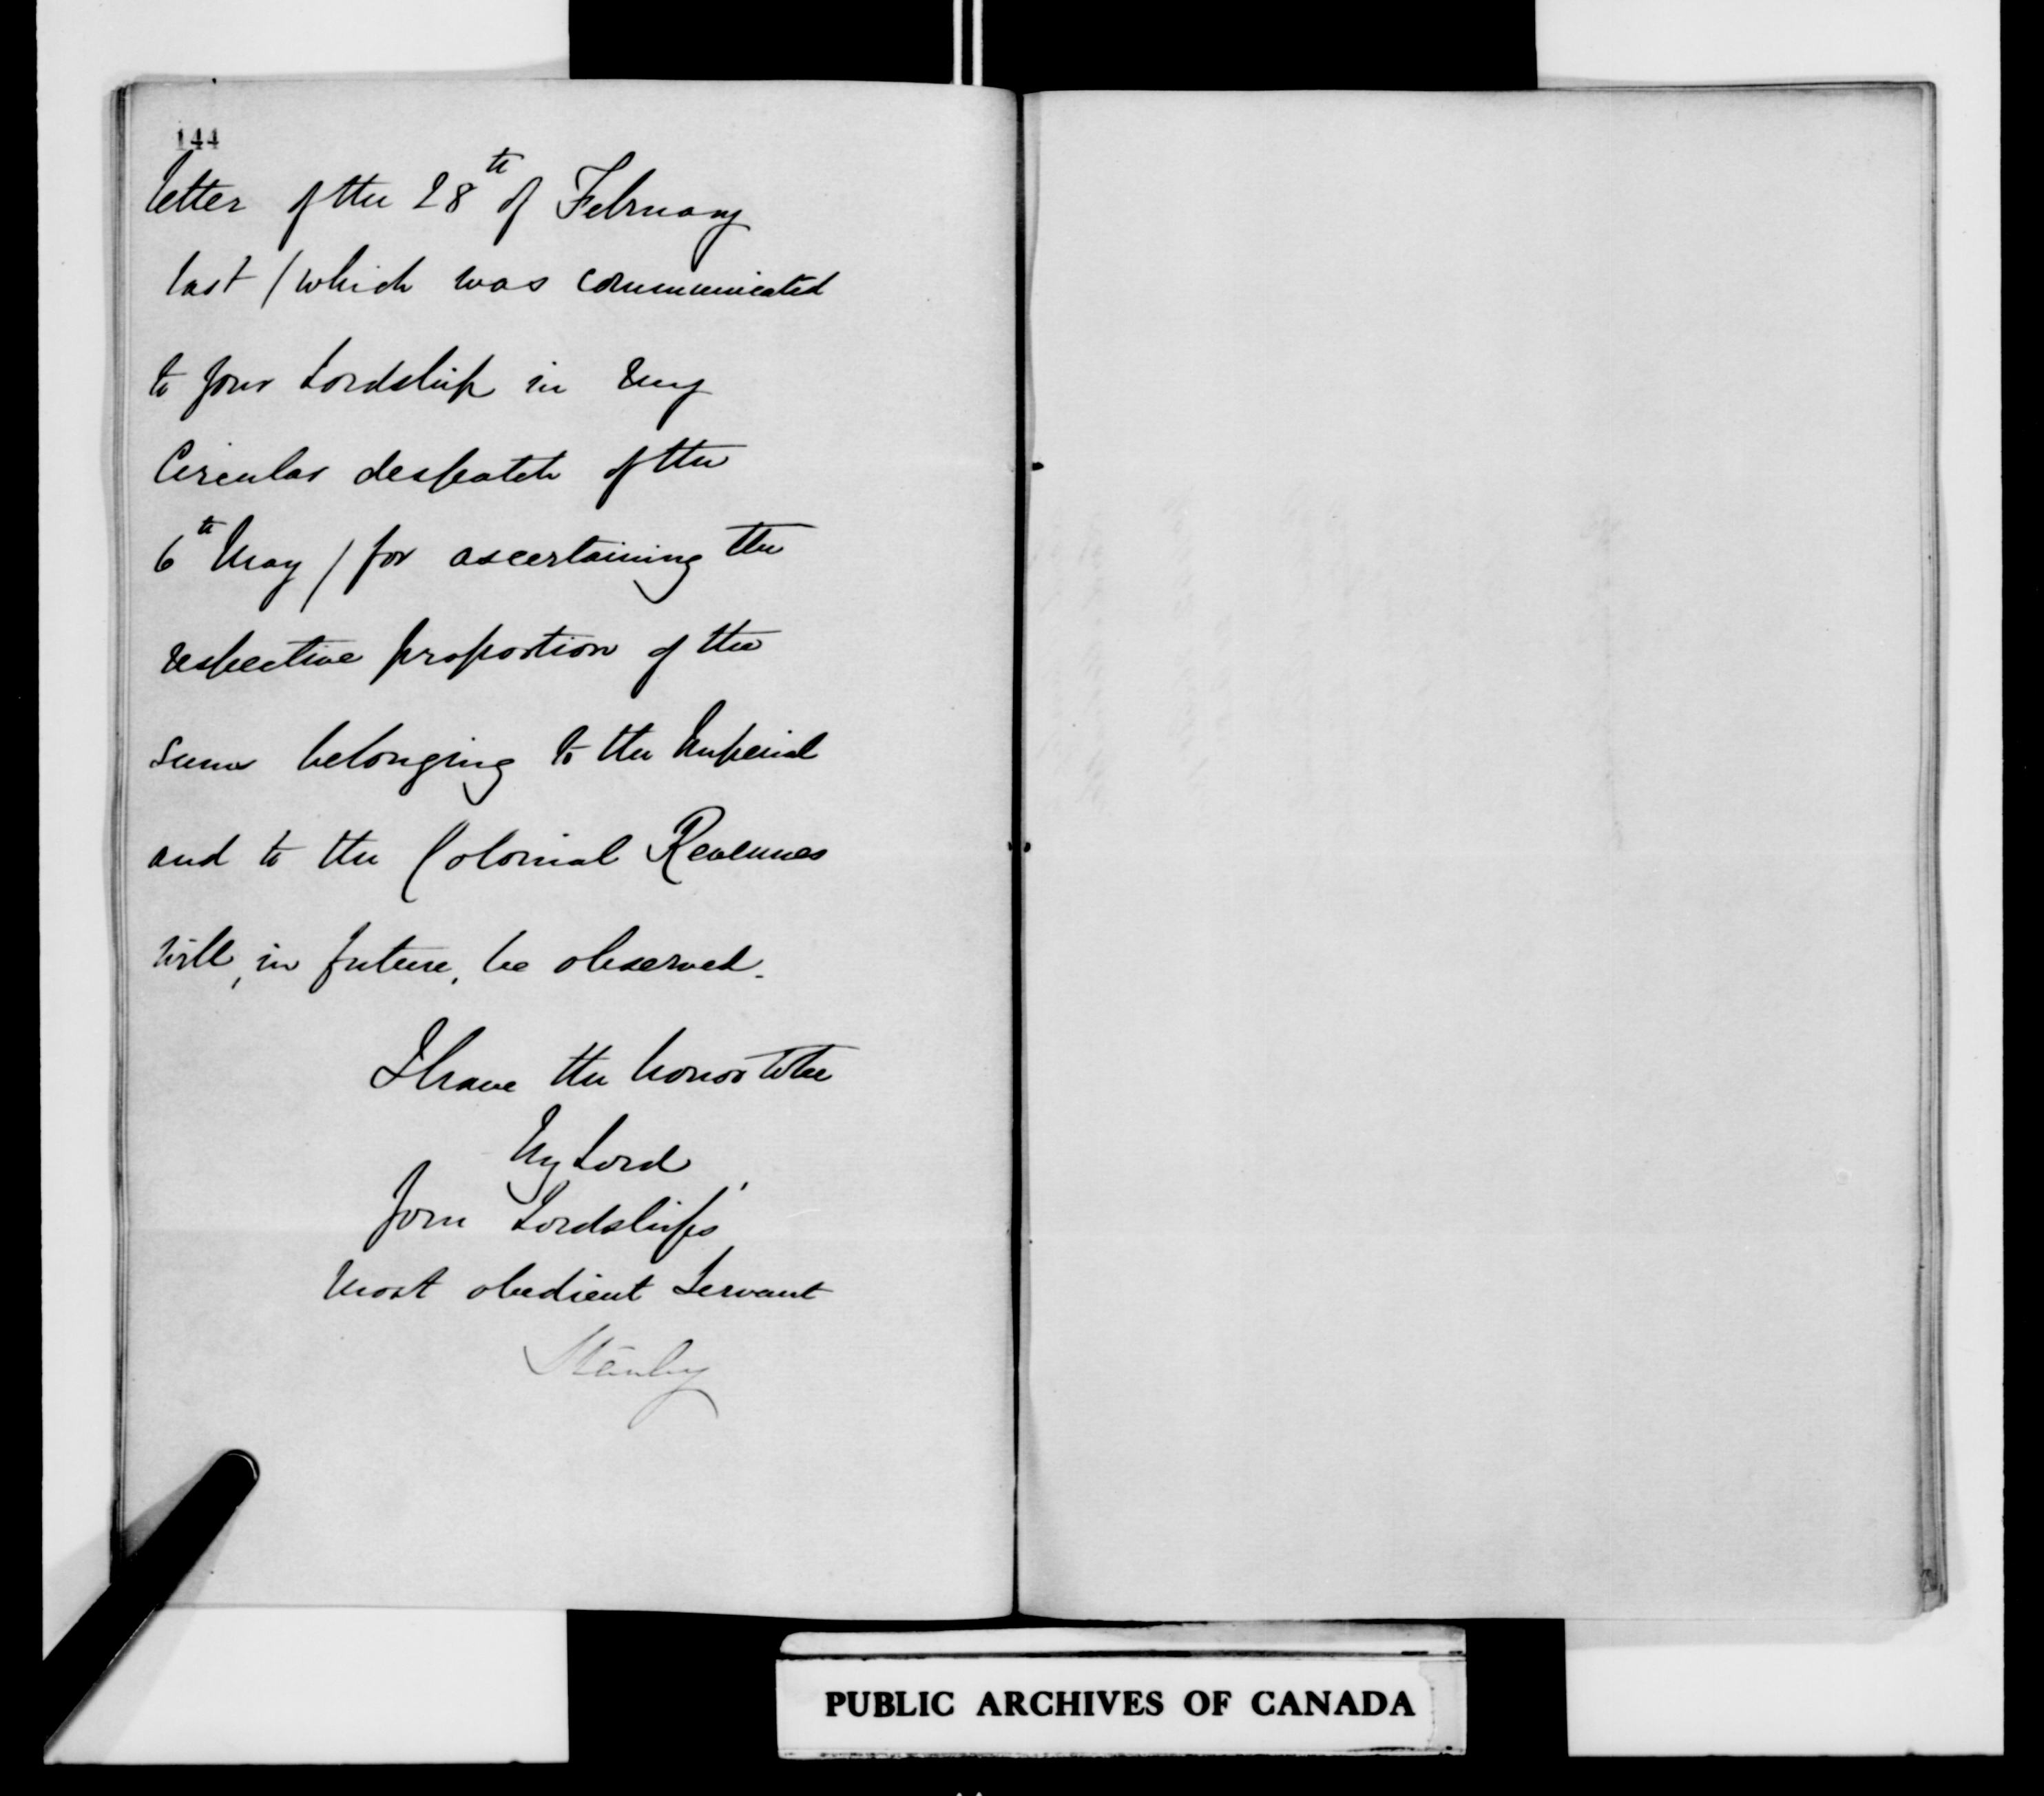 144
letter of the 28th of February
last / which was communicated
to your Lordship in my
Circular despatch of the
6th May / for ascertaining the
respective proportion of the
sums belonging to the Imperial
and to the Colonial Revenues
will, in future, be observed.
I have the honor to be
My Lord,
Your Lordship's
most obedient Servant
Stanley
PUBLIC ARCHIVES OF CANADA